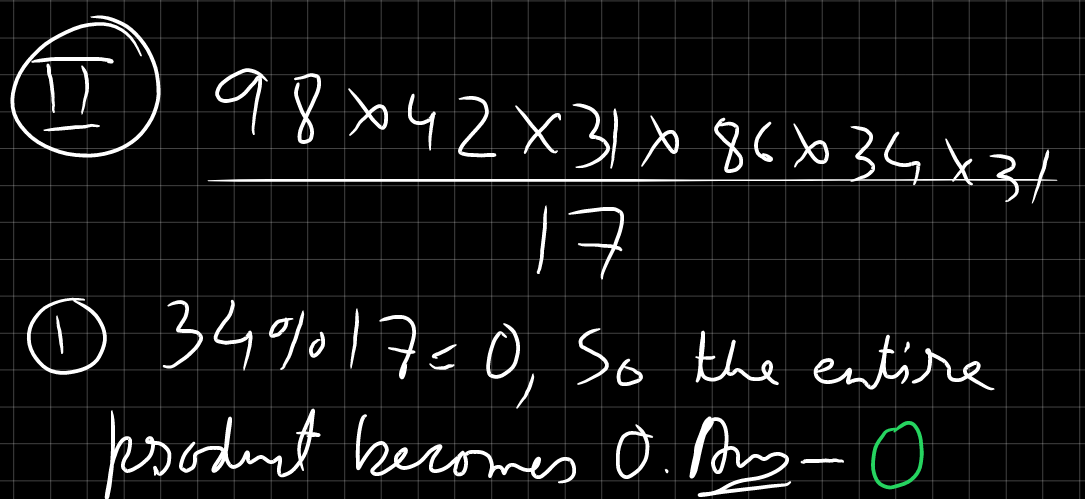 II 98 × 42 × 31 × 86 × 34 × 31
17
1 34%17=0, So the entire
product becomes 0. Ans - 0